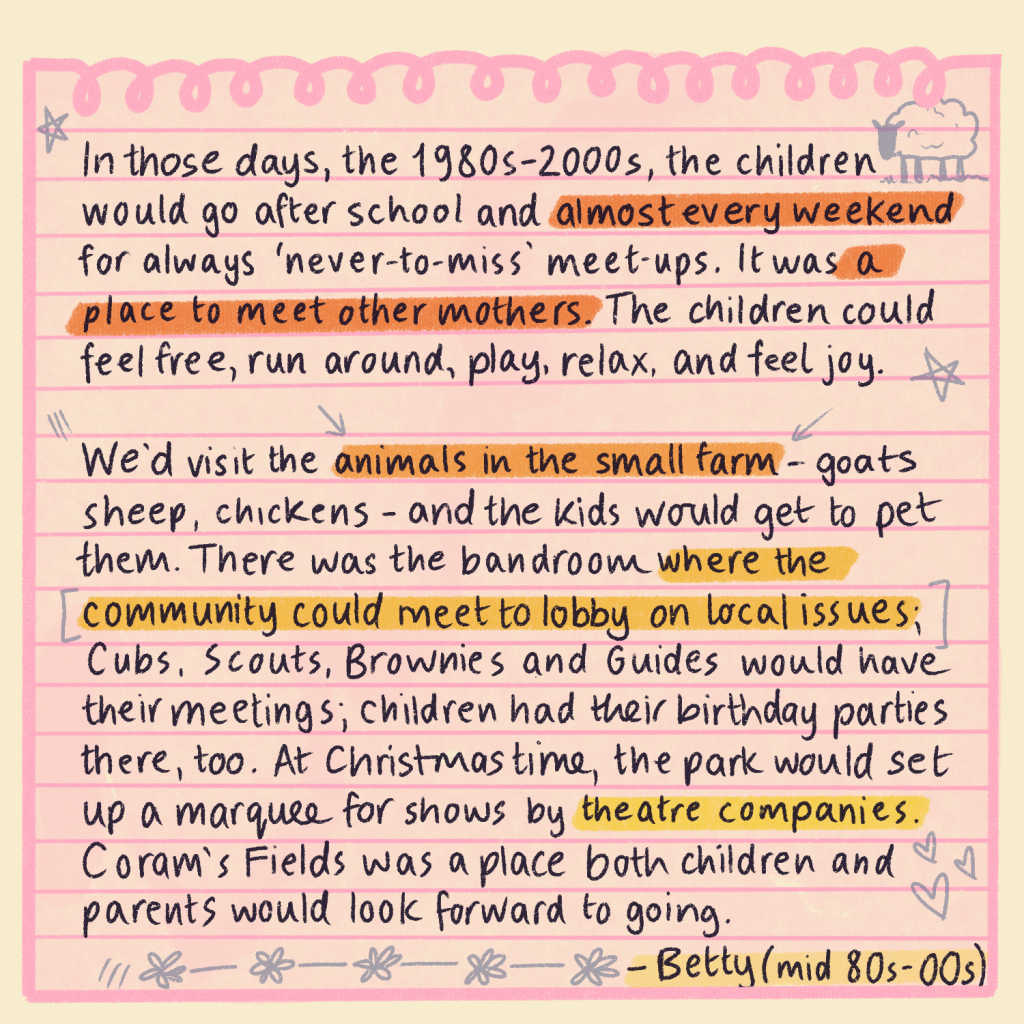 In those days, the 1980s-2000s, the children
would go after school and almost every weekend
for always 'never-to-miss' meet-ups. It was a
place to meet other mothers. The children could
feel free, run around, play, relax, and feel joy.
We'd visit the animals in the small farm - goats
sheep, chickens - and the kids would get to pet
them. There was the bandroom where the
community could meet to lobby on local issues;
Cubs, Scouts, Brownies and Guides would have
their meetings; children had their birthday parties
there, too. At Christmas time, the park would set
up a marquee for shows by theatre companies.
Coram's Fields was a place both children and
parents would look forward to going.
- Betty (mid 80s-00s)